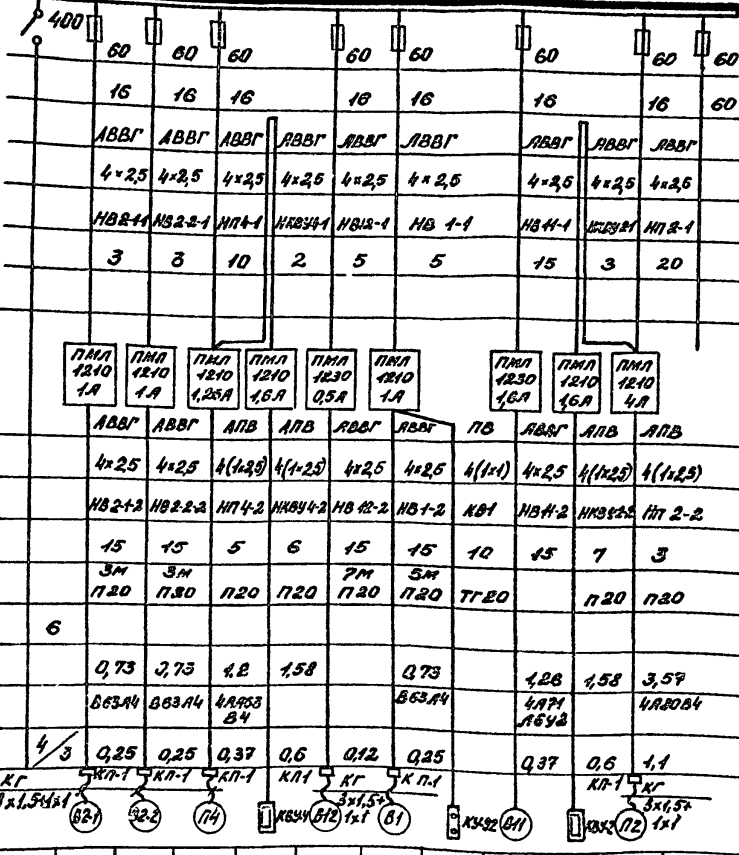 400
60 60 60 60 60 60 60 60
16 16 16 16 16 16 16 60
АВВГ АВВГ АВВГ АВВГ АВВГ АВВГ АВВГ АВВГ АВВГ
4×2,5 4×2,5 4×2,5 4×2,5 4×2,5 4×2,5 4×2,5 4×2,5 4×2,5
НВ2-1-1 НВ2-2-1 НП4-1 НКВУ4-1 НВ12-1 НВ 1-1 НВ11-1 НП2-1
3 3 10 2 5 5 15 3 20
ПМЛ ПМЛ ПМЛ ПМЛ ПМЛ ПМЛ ПМЛ ПМЛ ПМЛ
1210 1210 1210 1210 1230 1210 1230 1210 1210
1А 1А 1,25А 1,6А 0,5А 1А 1,6А 1,6А 4А
АВВГ АВВГ АПВ АПВ АВВГ АВВГ ПВ АВВГ АПВ АПВ
4×2,5 4×2,5 4(1×2,5) 4(1×2,5) 4×2,5 4×2,5 4(1×1) 4×2,5 4(1×2,5) 4(1×2,5)
НВ2-1-2 НВ2-2-2 НП4-2 НКВУ4-2 НВ12-2 НВ1-2 КВ1 НВ11-2 НКВУ2-2 НП 2-2
15 15 5 6 15 15 10 15 7 3
3м 3м 7м 5м
П20 П20 П20 П20 П20 П20 ТГ20 П20 П20
6
0,73 0,73 1,2 1,58 0,73 1,26 1,58 3,57
В63А4 В63А4 4АА63 В63А4 4А71 4А80В4
В4
4/3 0,25 0,25 0,37 0,6 0,12 0,25 0,37 0,6 1,1
КГ КП-1 КП-1 КП-1 КП1 КГ КП-1 КП-1 КГ
3×1,5+1×1 3×1,5+ 3×1,5+
В2-1 В2-2 П4 КВУ4 В12 1×1 В1 КУ92 В11 КВУ2 П2 1×1